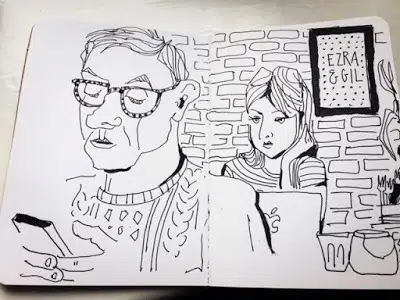 EZRA
& GIL